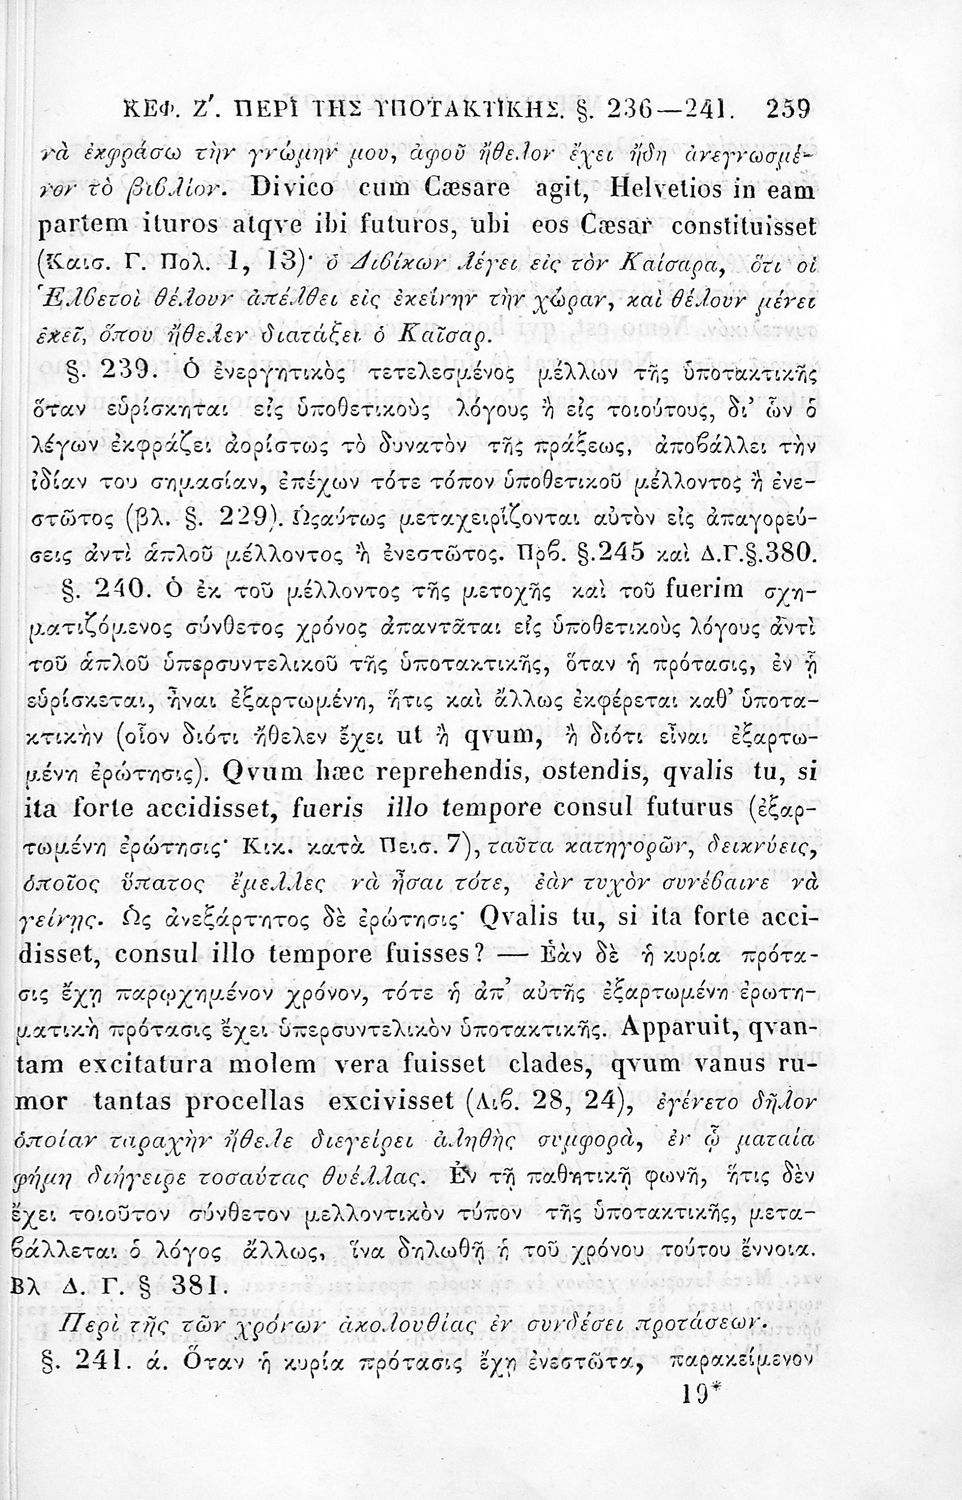 ΚΕΦ. Ζ΄. ΠΕΡῚ ΤΗΣ ΥΠΟΤΑΚΤΙΚΗΣ. §. 236—241. 259
νὰ ἐκφράσω τὴν γνώμην μου, ἀφοῦ ἤθελον ἔχει ἤδη ἀνεγνωσμέ-
νον τὸ βιβλίον. Divico cum Cæsare agit, Helvetios in eam
partem ituros atqve ibi futuros, ubi eos Cæsar constituisset
(Καισ. Γ. Πολ. 1, 13)· ὁ Διβίκων λέγει εἰς τὸν Καίσαρα, ὅτι οἱ
Ἑλβετοὶ θέλουν ἀπέλθει εἰς ἐκείνην τὴν χώραν, καὶ θέλουν μένει
ἐκεῖ, ὅπου ἤθελεν διατάξει ὁ Καῖσαρ.
§. 239. Ὁ ἐνεργητικὸς τετελεσμένος μέλλων τῆς ὑποτακτικῆς
ὅταν εὑρίσκηται εἰς ὑποθετικοὺς λόγους ἢ εἰς τοιούτους, δι᾽ ὧν ὁ
λέγων ἐκφράζει ἀορίστως τὸ δυνατὸν τῆς πράξεως, ἀποβάλλει τὴν
ἰδίαν του σημασίαν, ἐπέχων τότε τόπον ὑποθετικοῦ μέλλοντος ἢ ἐνε-
στῶτος (βλ. §. 229). Ὡςαύτως μεταχειρίζονται αὐτὸν εἰς ἀπαγορεύ-
σεις ἀντὶ ἁπλοῦ μέλλοντος ἢ ἐνεστῶτος. Πρβ. §.245 καὶ Δ.Γ.§.380.
§. 240. Ὁ ἐκ τοῦ μέλλοντος τῆς μετοχῆς καὶ τοῦ fuerim σχη-
ματιζόμενος σύνθετος χρόνος ἀπαντᾶται εἰς ὑποθετικοὺς λόγους ἀντὶ
τοῦ ἁπλοῦ ὑπερσυντελικοῦ τῆς ὑποτακτικῆς, ὅταν ἡ πρότασις, ἐν ᾗ
εὑρίσκεται, ἦναι ἐξαρτωμένη, ἥτις καὶ ἄλλως ἐκφέρεται καθ᾽ ὑποτα-
κτικὴν (οἷον διότι ἤθελεν ἔχει ut ἢ qvum, ἢ διότι εἶναι ἐξαρτω-
μένη ἐρώτησις). Qvum hæc reprehendis, ostendis, qvalis tu, si
ita forte accidisset, fueris illo tempore consul futurus (ἐξαρ-
τωμένη ἐρώτησις· Κικ. κατὰ Πεισ. 7), ταῦτα κατηγορῶν, δεικνύεις,
ὁποῖος ὕπατος ἔμελλες νὰ ἦσαι τότε, ἐὰν τυχὸν συνέβαινε νὰ
γείνῃς. Ὡς ἀνεξάρτητος δὲ ἐρώτησις· Qvalis tu, si ita forte acci-
disset, consul illo tempore fuisses? — Ἐὰν δὲ ἡ κυρία πρότα-
σις ἔχῃ παρῳχημένον χρόνον, τότε ἡ ἀπ᾽ αὐτῆς ἐξαρτωμένη ἐρωτη-
ματικὴ πρότασις ἔχει ὑπερσυντελικὸν ὑποτακτικῆς. Apparuit, qvan-
tam excitatura molem vera fuisset clades, qvum vanus ru-
mor tantas procellas excivisset (Λιβ. 28, 24), ἐγένετο δῆλον
ὁποίαν ταραχὴν ἤθελε διεγείρει ἀληθὴς συμφορὰ, ἐν ᾧ ματαία
φήμη διήγειρε τοσαύτας θυέλλας. Ἐν τῇ παθητικῇ φωνῇ, ἥτις δὲν
ἔχει τοιοῦτον σύνθετον μελλοντικὸν τύπον τῆς ὑποτακτικῆς, μετα-
βάλλεται ὁ λόγος ἄλλως, ἵνα δηλωθῇ ἡ τοῦ χρόνου τούτου ἔννοια.
Βλ Δ. Γ. § 381.
Περὶ τῆς τῶν χρόνων ἀκολουθίας ἐν συνδέσει προτάσεων.
§. 241. ά. Ὅταν ἡ κυρία πρότασις ἔχῃ ἐνεστῶτα, παρακείμενον
19*